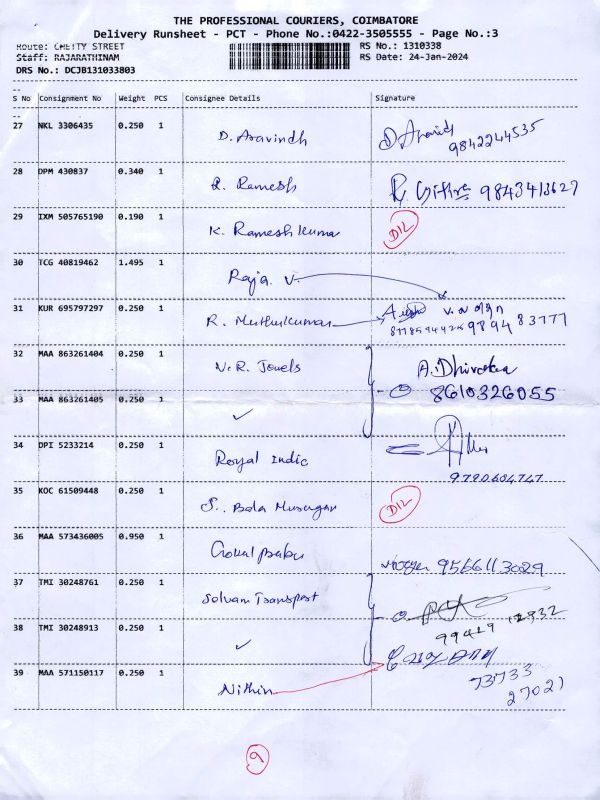 THE PROFESSIONAL COURIERS, COIMBATORE
Delivery Runsheet - PCT - Phone No.:0422-3505555 - Page No.:3
Route: CHETTY STREET RS No.: 1310338
Staff: RAJARATHINAM RS Date: 24-Jan-2024
DRS No.: DCJB131033803
S No Consignment No Weight PCS Consignee Details Signature
27 NKL 3306435 0.250 1 D. Aravindh
9842244535
28 DPM 430837 0.340 1 R. Ramesh R. 9843413627
29 IXM 505765190 0.190 1 K. Rameshkumar D12
30 TCG 40819462 1.495 1 Raja V.
31 KUR 695797297 0.250 1 R. Muthukumar
98948 33777
32 MAA 863261404 0.250 1 N.R. Jewels A. Dhivakar
33 MAA 863261405 0.250 1 ✓ 8610326055
34 DPI 5233214 0.250 1 Royal Indic
9790604747
35 KOC 61509448 0.250 1 S. Bala Murugan D12
36 MAA 573436005 0.950 1 Gokul babu 9566113029
37 TMI 30248761 0.250 1 Selvam Transport
99419 12932
38 TMI 30248913 0.250 1 ✓
39 MAA 571150117 0.250 1 Nithin 73733
27027
9